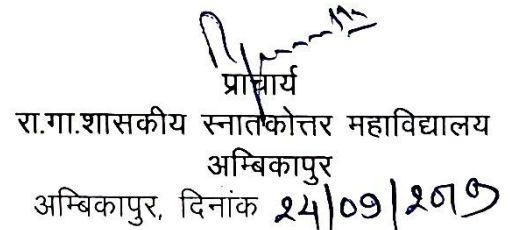 प्राचार्य
रा.गा.शासकीय स्नातकोत्तर महाविद्यालय
अम्बिकापुर
अम्बिकापुर, दिनांक